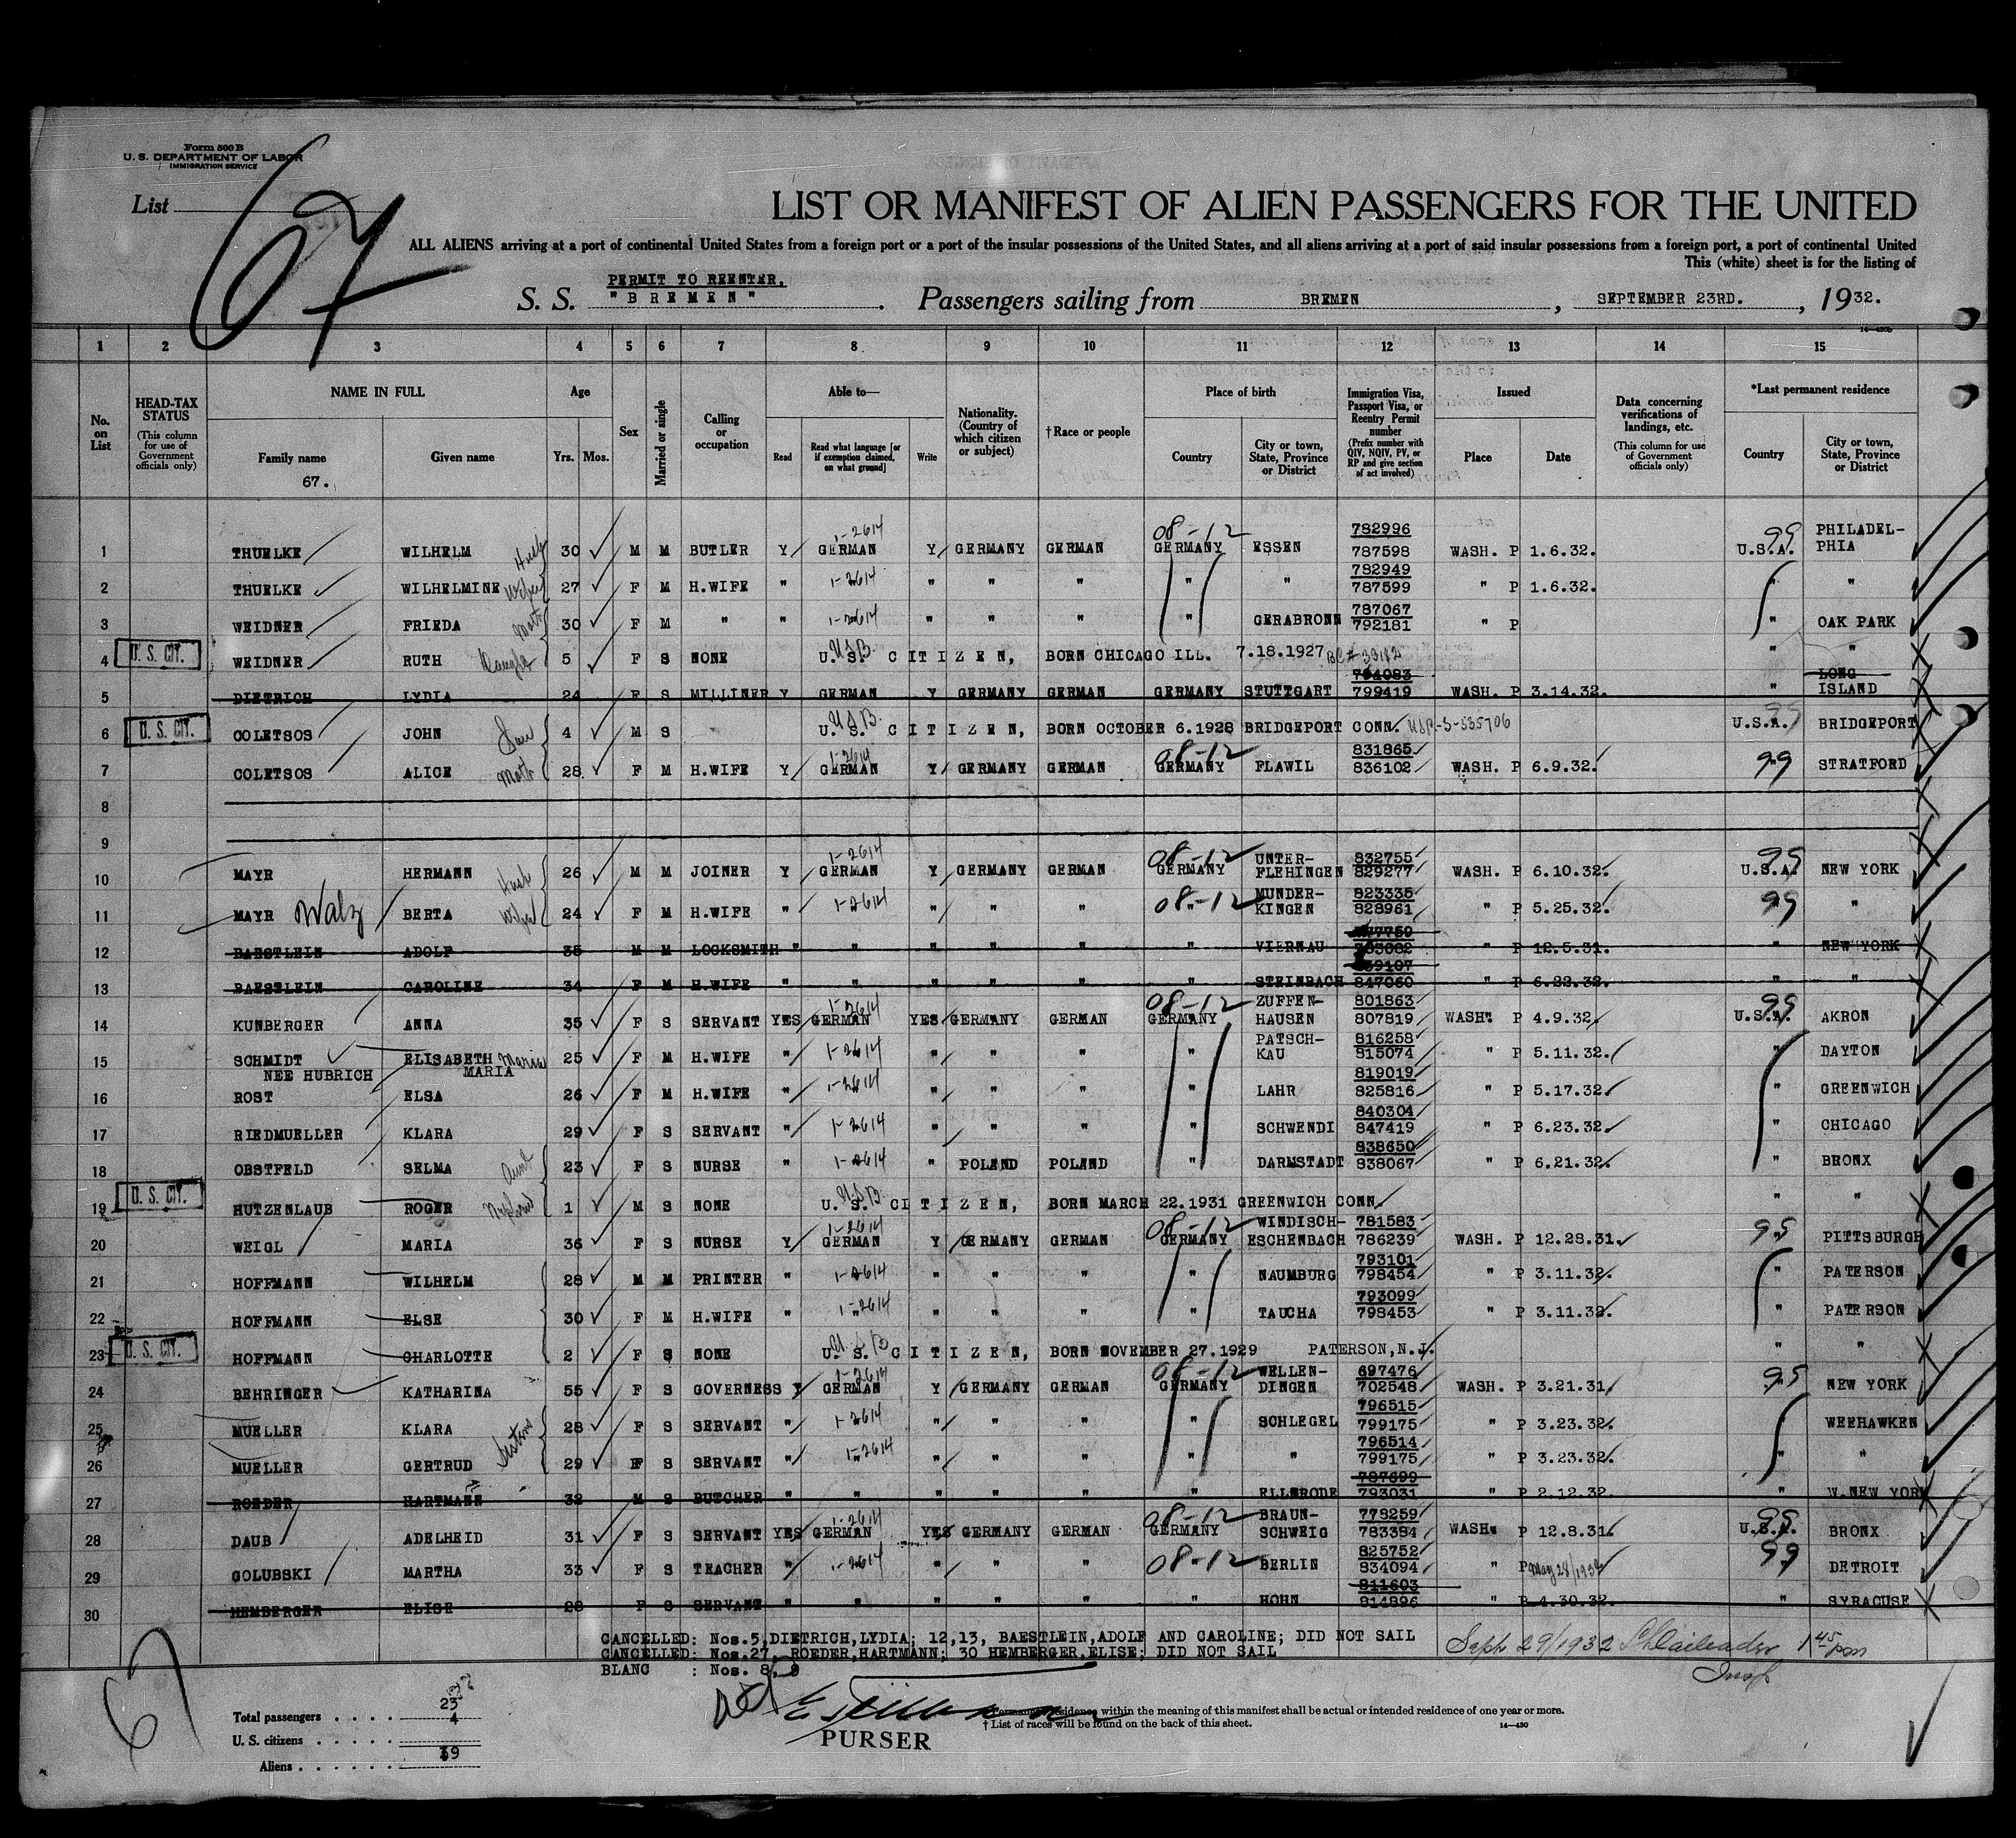 Form 500 B
U. S. DEPARTMENT OF LABOR
IMMIGRATION SERVICE
List
67
LIST OR MANIFEST OF ALIEN PASSENGERS FOR THE UNITED
ALL ALIENS arriving at a port of continental United States from a foreign port or a port of the insular possessions of the United States, and all aliens arriving at a port of said insular possessions from a foreign port, a port of continental United
This (white) sheet is for the listing of
PERMIT TO REENTER.
S. S. "BREMEN" Passengers sailing from BREMEN, SEPTEMBER 23RD., 1932.
1 2 3 4 5 6 7 8 9 10 11 12 13 14 15
No. on List
HEAD-TAX STATUS (This column for use of Government officials only)
NAME IN FULL
Family name
67.
Given name
Age
Yrs. Mos.
Sex
Married or single
Calling or occupation
Able to—
Read
Read what language [or if exemption claimed, on what ground]
Write
Nationality. (Country of which citizen or subject)
†Race or people
Place of birth
Country
City or town, State, Province or District
Immigration Visa, Passport Visa, or Reentry Permit number (Prefix number with QIV, NQIV, PV, or RP and give section of act involved)
Issued
Place
Date
Data concerning verifications of landings, etc. (This column for use of Government officials only)
*Last permanent residence
Country
City or town, State, Province or District
1 THUELKE WILHELM Husb 30 M M BUTLER Y GERMAN 1-2614 Y GERMANY GERMAN 08-12 GERMANY ESSEN 782996 787598 WASH. P 1.6.32. 99 U.S.A. PHILADELPHIA
2 THUELKE WILHELMINE Wife 27 F M H.WIFE " 1-2614 " " " " " 782949 787599 " P 1.6.32. " "
3 WEIDNER FRIEDA Moth 30 F M " " 1-2614 " " " " GERABRONN 787067 792181 " P " OAK PARK
4 U. S. CIT. WEIDNER RUTH Daught 5 F S NONE USB U.S. CITIZEN, BORN CHICAGO ILL. 7.18.1927 BC# 39182 " "
5 DIETRICH LYDIA 24 F S MILLINER Y GERMAN Y GERMANY GERMAN GERMANY STUTTGART 794083 799419 WASH. P 3.14.32. " LONG ISLAND
6 U. S. CIT. COLETSOS JOHN Son 4 M S USB U.S. CITIZEN, BORN OCTOBER 6.1928 BRIDGEPORT CONN. USP-S-535706 U.S.A. BRIDGEPORT
7 COLETSOS ALICE Moth 28 F M H.WIFE Y GERMAN 1-2614 Y GERMANY GERMAN 08-12 GERMANY FLAWIL 831865 836102 WASH. P 6.9.32. 99 STRATFORD
8
9
10 MAYR HERMANN Husb 26 M M JOINER Y GERMAN 1-2614 Y GERMANY GERMAN 08-12 GERMANY UNTER-FLEHINGEN 832755 829277 WASH. P 6.10.32. 95 U.S.A. NEW YORK
11 MAYR Walz BERTA Wife 24 F M H.WIFE " 1-2614 " " " 08-12 " MUNDER-KINGEN 823335 828961 " P 5.25.32. 99 "
12 BAESTLEIN ADOLF 35 M M LOCKSMITH " " " " " " VIERNAU " P 12.5.31. " NEW YORK
13 BAESTLEIN CAROLINE 34 F M H.WIFE " " " " " " STEINBACH 839107 847060 " P 6.22.32. " "
14 KUNBERGER ANNA 35 F S SERVANT YES GERMAN 1-2614 YES GERMANY GERMAN 08-12 GERMANY ZUFFEN-HAUSEN 801863 807819 WASH. P 4.9.32. 99 U.S.A. AKRON
15 SCHMIDT NEE HUBRICH ELISABETH Maria MARIA 25 F M H.WIFE " 1-2614 " " " " PATSCH-KAU 816258 815074 " P 5.11.32. " DAYTON
16 ROST ELSA 26 F M H.WIFE " 1-2614 " " " " LAHR 819019 825816 " P 5.17.32. " GREENWICH
17 RIEDMUELLER KLARA 29 F S SERVANT " 1-2614 " " " " SCHWENDI 840304 847419 " P 6.23.32. " CHICAGO
18 OBSTFELD SELMA Aunt 23 F S NURSE " 1-2614 " POLAND POLAND " DARMSTADT 838650 838067 " P 6.21.32. " BRONX
19 U. S. CIT. HUTZENLAUB ROGER Nephew 1 M S NONE USB U.S. CITIZEN, BORN MARCH 22.1931 GREENWICH CONN. " "
20 WEIGL MARIA 36 F S NURSE Y GERMAN 1-2614 Y GERMANY GERMAN 08-12 GERMANY WINDISCH-ESCHENBACH 781583 786239 WASH. P 12.28.31. 95 PITTSBURGH
21 HOFFMANN WILHELM 28 M M PRINTER " 1-2614 " " " " NAUMBURG 793101 798454 " P 3.11.32. " PATERSON
22 HOFFMANN ELSE 30 F M H.WIFE " 1-2614 " " " " TAUCHA 793099 798453 " P 3.11.32. " PATERSON
23 U. S. CIT. HOFFMANN CHARLOTTE 2 F S NONE USB U.S. CITIZEN, BORN NOVEMBER 27.1929 PATERSON,N.J. " "
24 BEHRINGER KATHARINA 55 F S GOVERNESS Y GERMAN 1-2614 Y GERMANY GERMAN 08-12 GERMANY WELLEN-DINGEN 697476 702548 WASH. P 3.21.31. 95 NEW YORK
25 MUELLER KLARA 28 F S SERVANT " 1-2614 " " " " SCHLEGEL 796515 799175 " P 3.23.32. " WEEHAWKEN
26 MUELLER GERTRUD Sisters 29 F S SERVANT " 1-2614 " " " " " 796514 799175 " P 3.23.32. " "
27 ROEDER HARTMANN 32 M S BUTCHER " " " " " " ELLERODE 787699 793031 " P 2.12.32. " W.NEW YORK
28 DAUB ADELHEID 31 F S SERVANT YES GERMAN 1-2614 YES GERMANY GERMAN 08-12 GERMANY BRAUN-SCHWEIG 778259 783384 WASH. P 12.8.31. 95 U.S.A. BRONX
29 GOLUBSKI MARTHA 33 F S TEACHER " 1-2614 " " " 08-12 BERLIN 825752 834094 " P May 28/1932 99 DETROIT
30 HEMBERGER ELISE 28 F S SERVANT " " " " " " HOHN 811603 814896 " P 4.30.32. " SYRACUSE
CANCELLED: Nos.5,DIETRICH,LYDIA; 12,13, BAESTLEIN,ADOLF AND CAROLINE; DID NOT SAIL
CANCELLED: Nos.27, ROEDER,HARTMANN; 30 HEMBERGER,ELISE; DID NOT SAIL
BLANC : Nos. 8, 9
Sept 29/1932 1 45 pm
Insp
67
Total passengers . . . . 23
U. S. citizens . . . . . 4
Aliens . . . . . 19
PURSER
*Permanent residence within the meaning of this manifest shall be actual or intended residence of one year or more.
† List of races will be found on the back of this sheet.
14—430